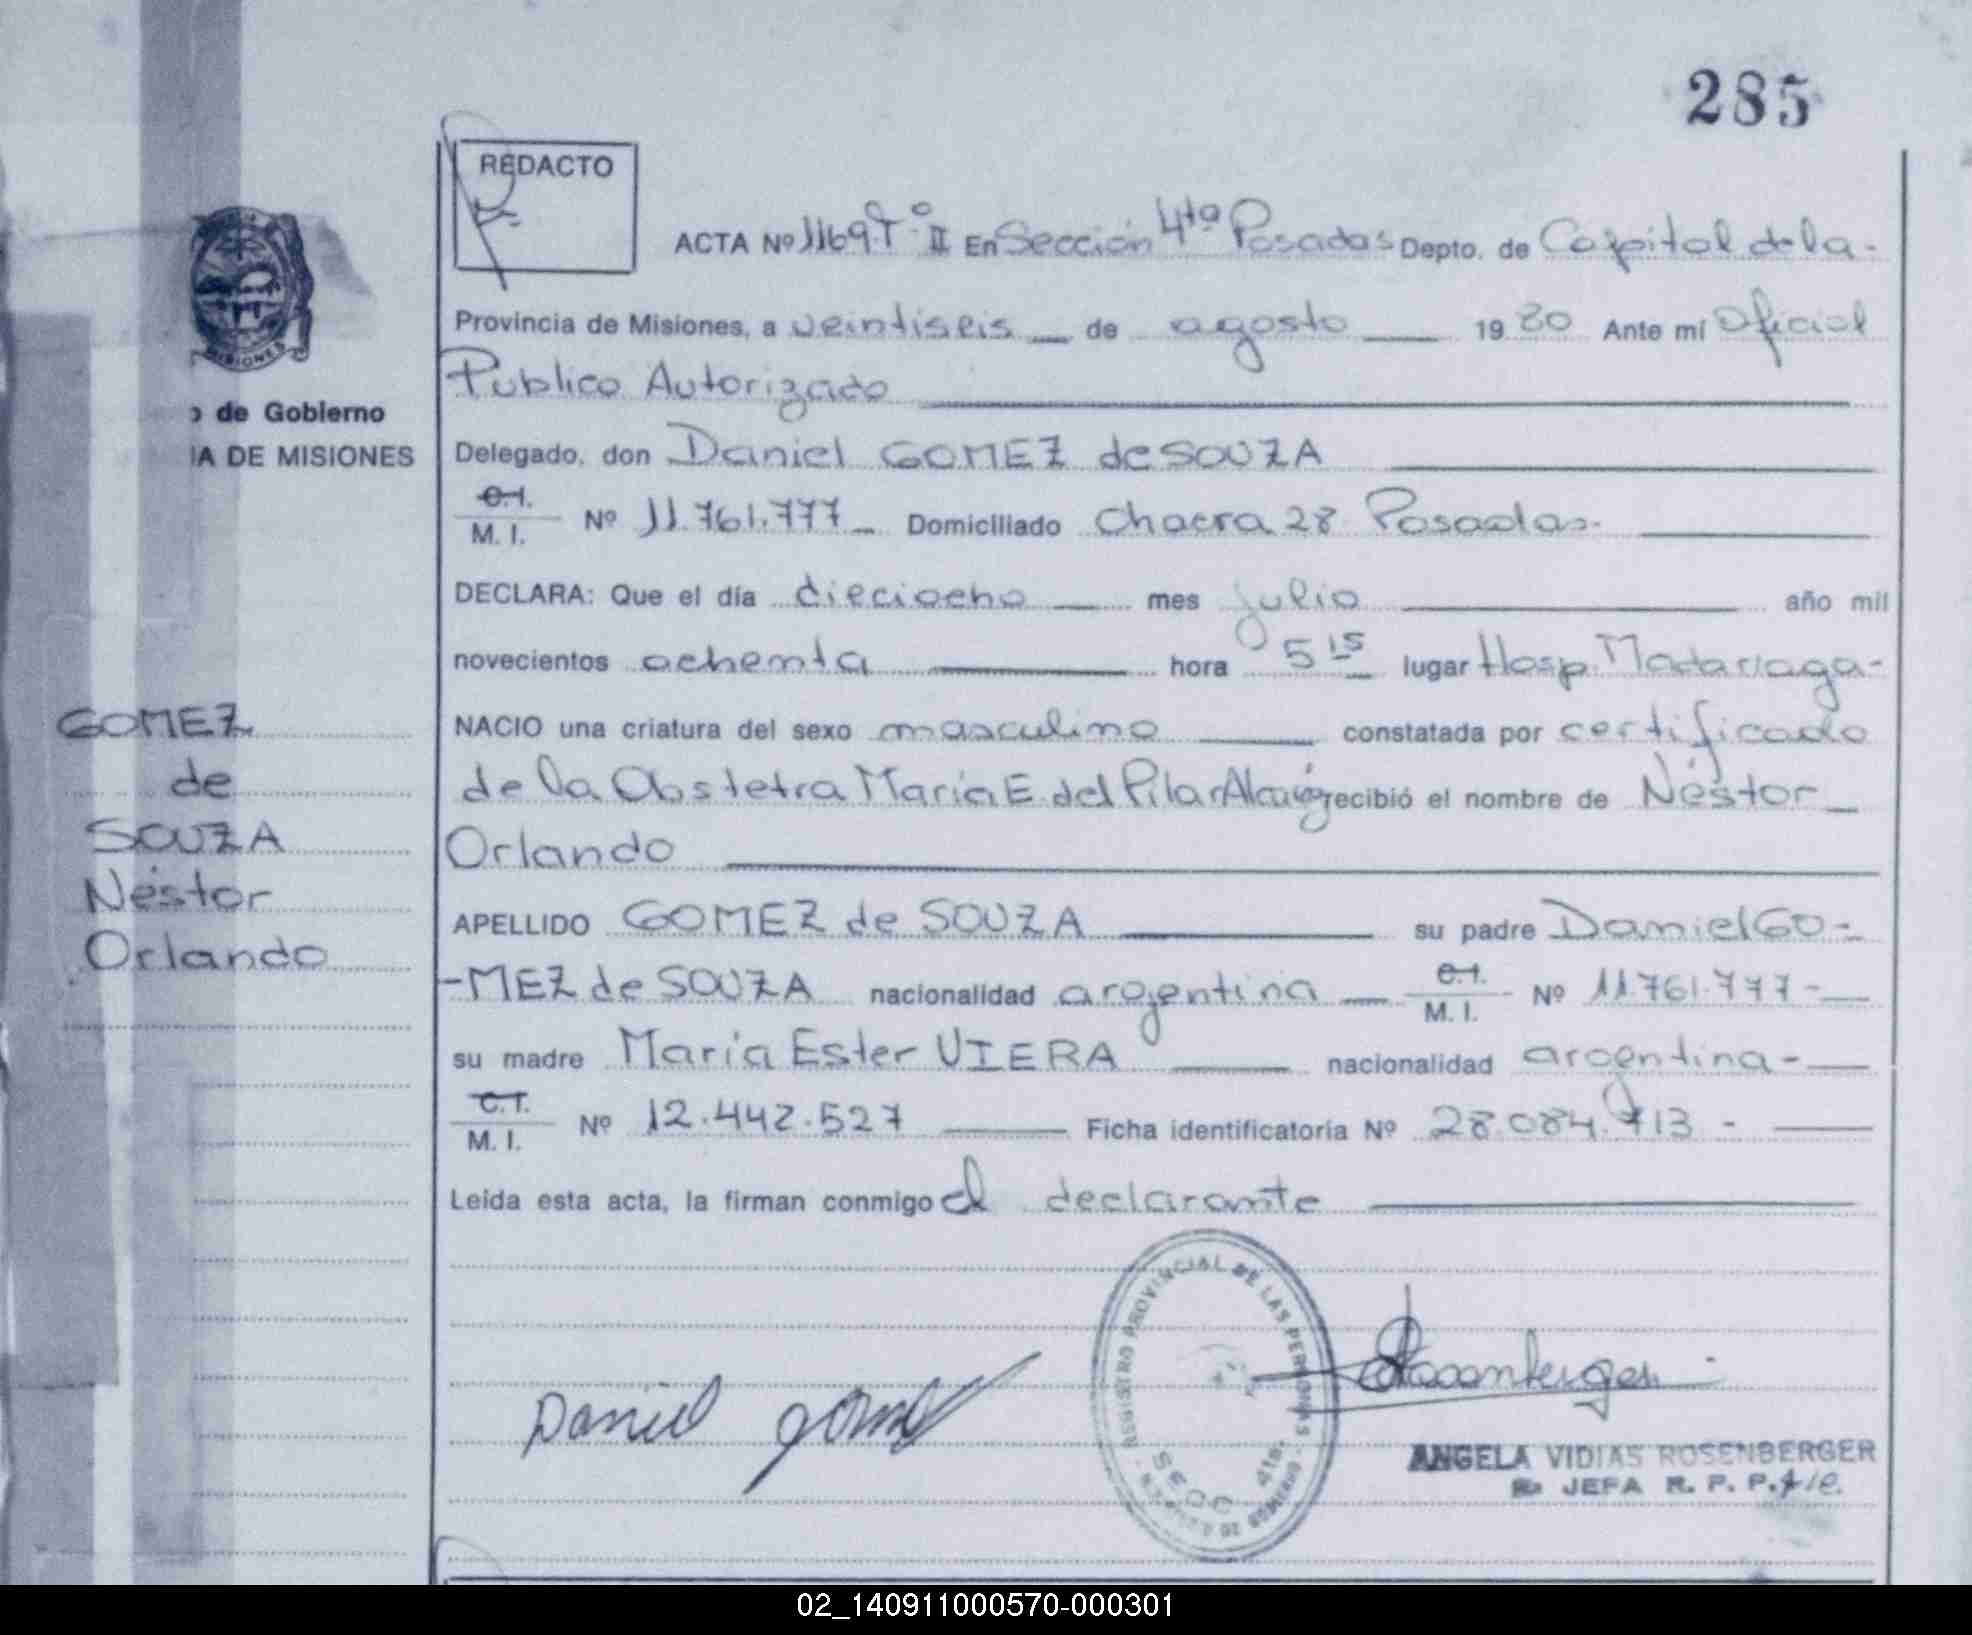 285
REDACTO
ACTA Nº 1169. Tº II En Sección 4ta Posadas Depto. de Capital de la -
Provincia de Misiones, a veintiseis de agosto 19 80 Ante mí Oficial
Publico Autorizado
Delegado, don Daniel GOMEZ de SOUZA
C.I.
M. I. Nº 11.761.777 Domiciliado Chacra 28 Posadas.
DECLARA: Que el día dieciocho mes julio año mil
novecientos ochenta hora 5 15 lugar Hosp. Madariaga -
NACIO una criatura del sexo masculino constatada por certificado
de la Obstetra María E. del Pilar recibió el nombre de Néstor
Orlando
APELLIDO GOMEZ de SOUZA su padre Daniel GO-
-MEZ de SOUZA nacionalidad argentina C.I.
M. I. Nº 11.761.777 -
su madre María Ester VIERA nacionalidad argentina -
C.I.
M. I. Nº 12.442.527 Ficha identificatoria Nº 28.084.713 -
Leida esta acta, la firman conmigo el declarante
Daniel Gomez
REGISTRO PROVINCIAL DE LAS PERSONAS
SECC 4ta.
Rosenberger
ANGELA VIDIAS ROSENBERGER
JEFA R. P. P.
MISIONES
o de Gobierno
IA DE MISIONES
GOMEZ
de
SOUZA
Néstor
Orlando
02_140911000570-000301